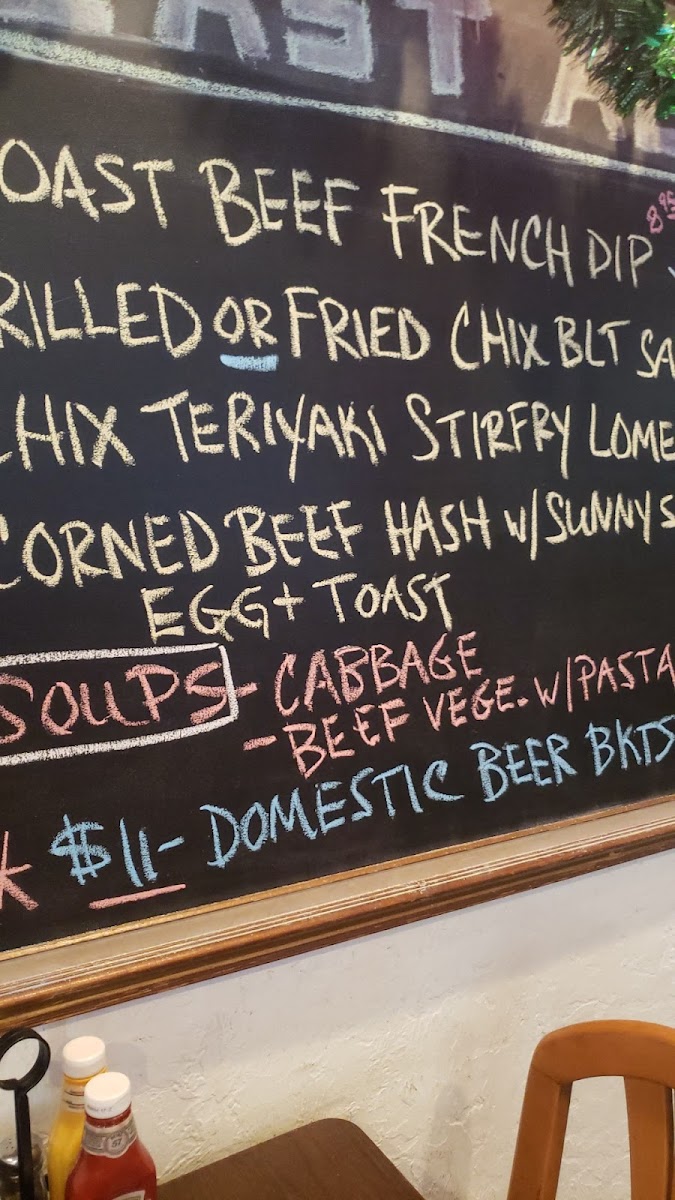 AST
OAST BEEF FRENCH DIP 8.95
RILLED OR FRIED CHIX BLT SA
CHIX TERIYAKI STIRFRY LOME
CORNED BEEF HASH W/SUNNY S
EGG + TOAST
SOUPS - CABBAGE
- BEEF VEGE. W/PASTA
* $11 - DOMESTIC BEER BKTS
57